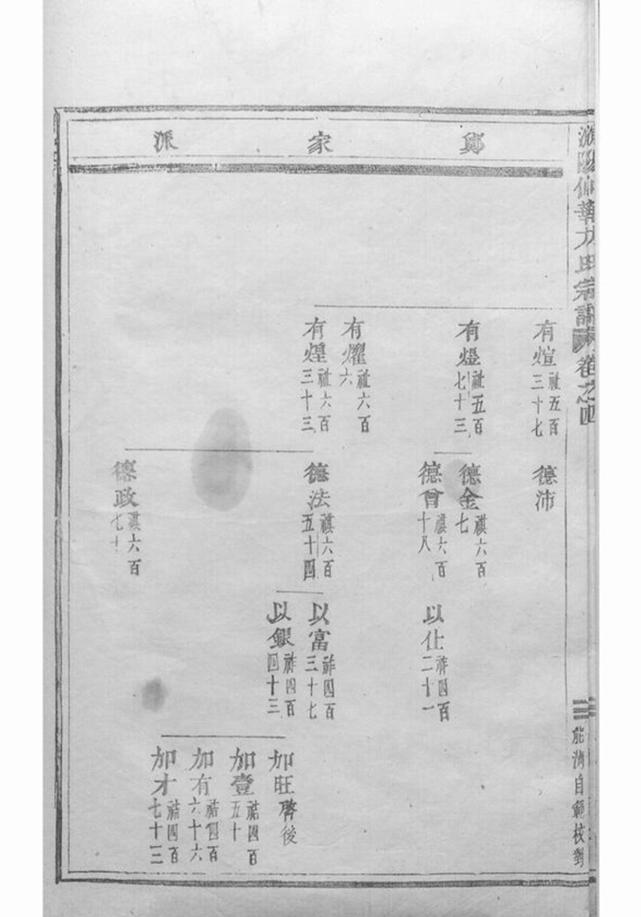 仙華方氏宗譜 卷之四
鄭家派
有煊 祉五百三十七
有燈 祉五百七十三
有燿 祉六百六
有煌 祉六百三十三
德沛
德金 禥六百七
德曾 禥六百十八
德法 禥六百五十四
德政 禥六百七十
以仕 祚四百二十一
以富 祚四百三十七
以銀 祚四百四十三
加旺 啓後
加壹 祜四百五十
加有 祜四百六十六
加才 祜四百七十三